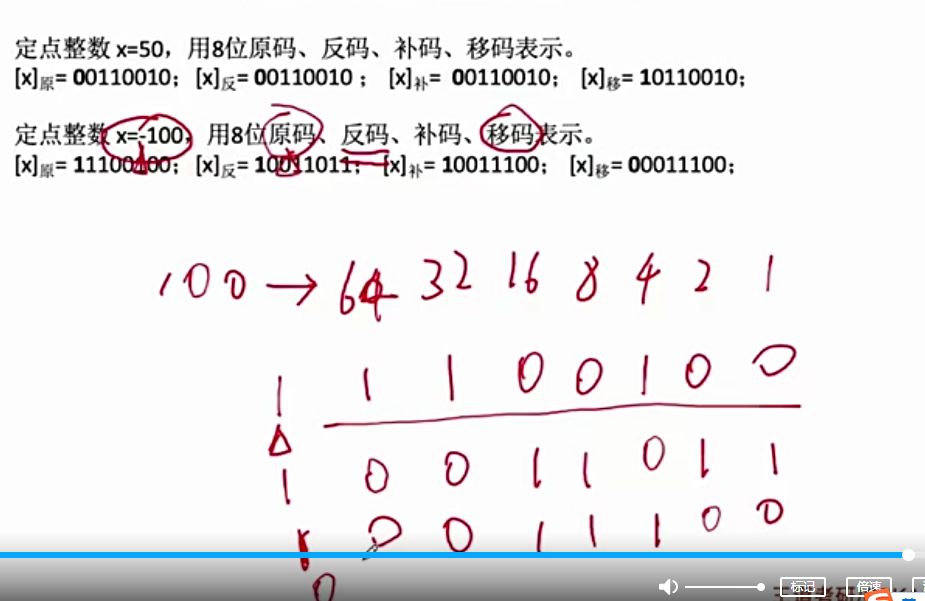 定点整数 x=50，用8位原码、反码、补码、移码表示。
[x]原= 00110010；[x]反= 00110010； [x]补= 00110010； [x]移= 10110010；
定点整数 x=-100，用8位原码、反码、补码、移码表示。
[x]原= 11100100；[x]反= 10011011；[x]补= 10011100； [x]移= 00011100；
100 → 64 32 16 8 4 2 1
1 1 1 0 0 1 0 0
1 0 0 1 1 0 1 1
1 0 0 1 1 1 0 0
0
标记 倍速